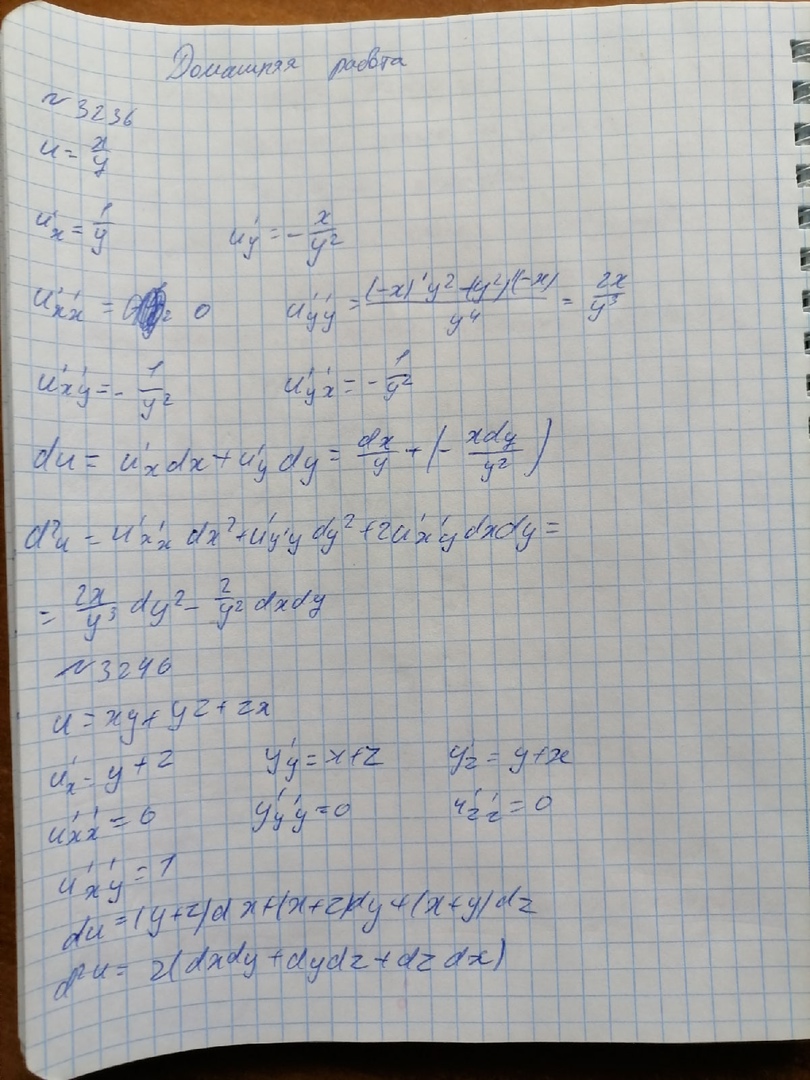 Домашняя работа
№3236
u = x/y
u'x = 1/y u'y = - x/y²
u''xx = 0 u''yy = ((-x)'y² - (y²)'(-x))/y⁴ = 2x/y³
u''xy = - 1/y² u''yx = - 1/y²
du = u'x dx + u'y dy = dx/y + (- xdy/y²)
d²u = u''xx dx² + u''yy dy² + 2u''xy dxdy =
= 2x/y³ dy² - 2/y² dxdy
№3246
u = xy + yz + zx
u'x = y + z y'y = x + z y'z = y + x
u''xx = 0 y''yy = 0 u''zz = 0
u''xy = 1
du = (y+z)dx + (x+z)dy + (x+y)dz
d²u = 2(dxdy + dydz + dzdx)